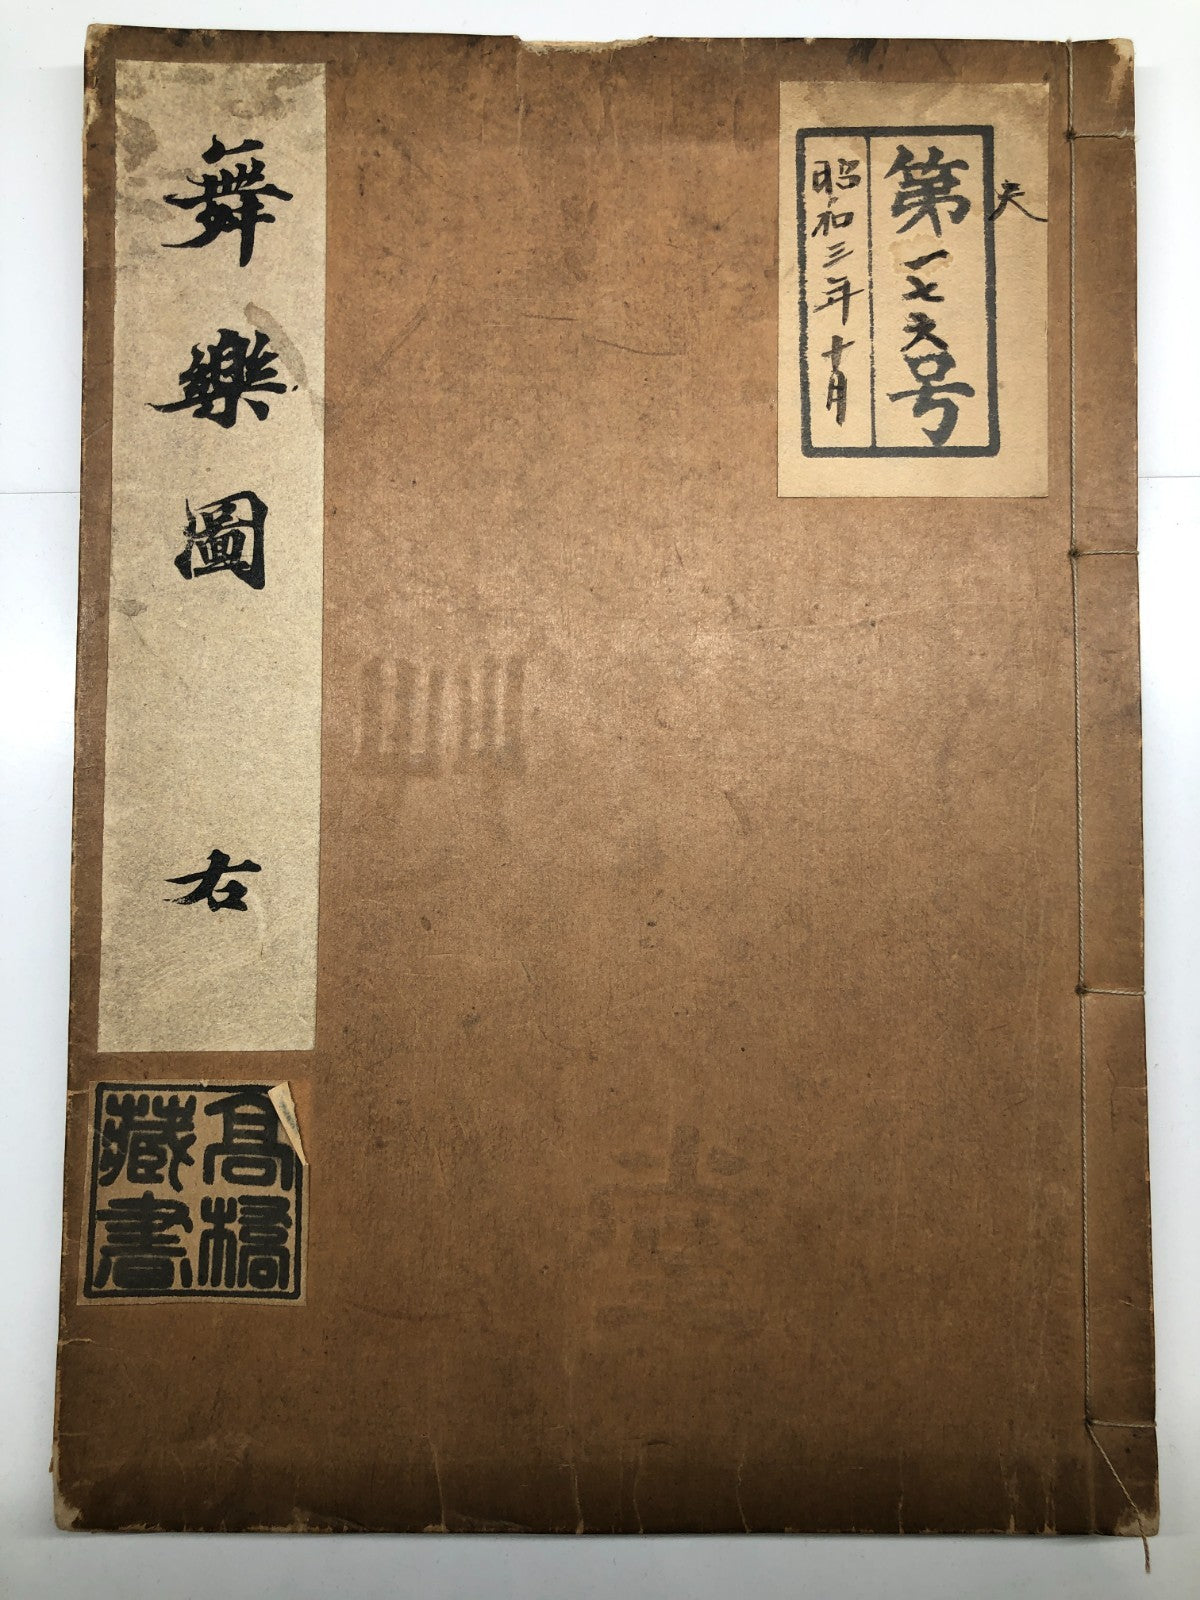 第一七六号
昭和三年十月
舞樂圖 右
高橋
藏書